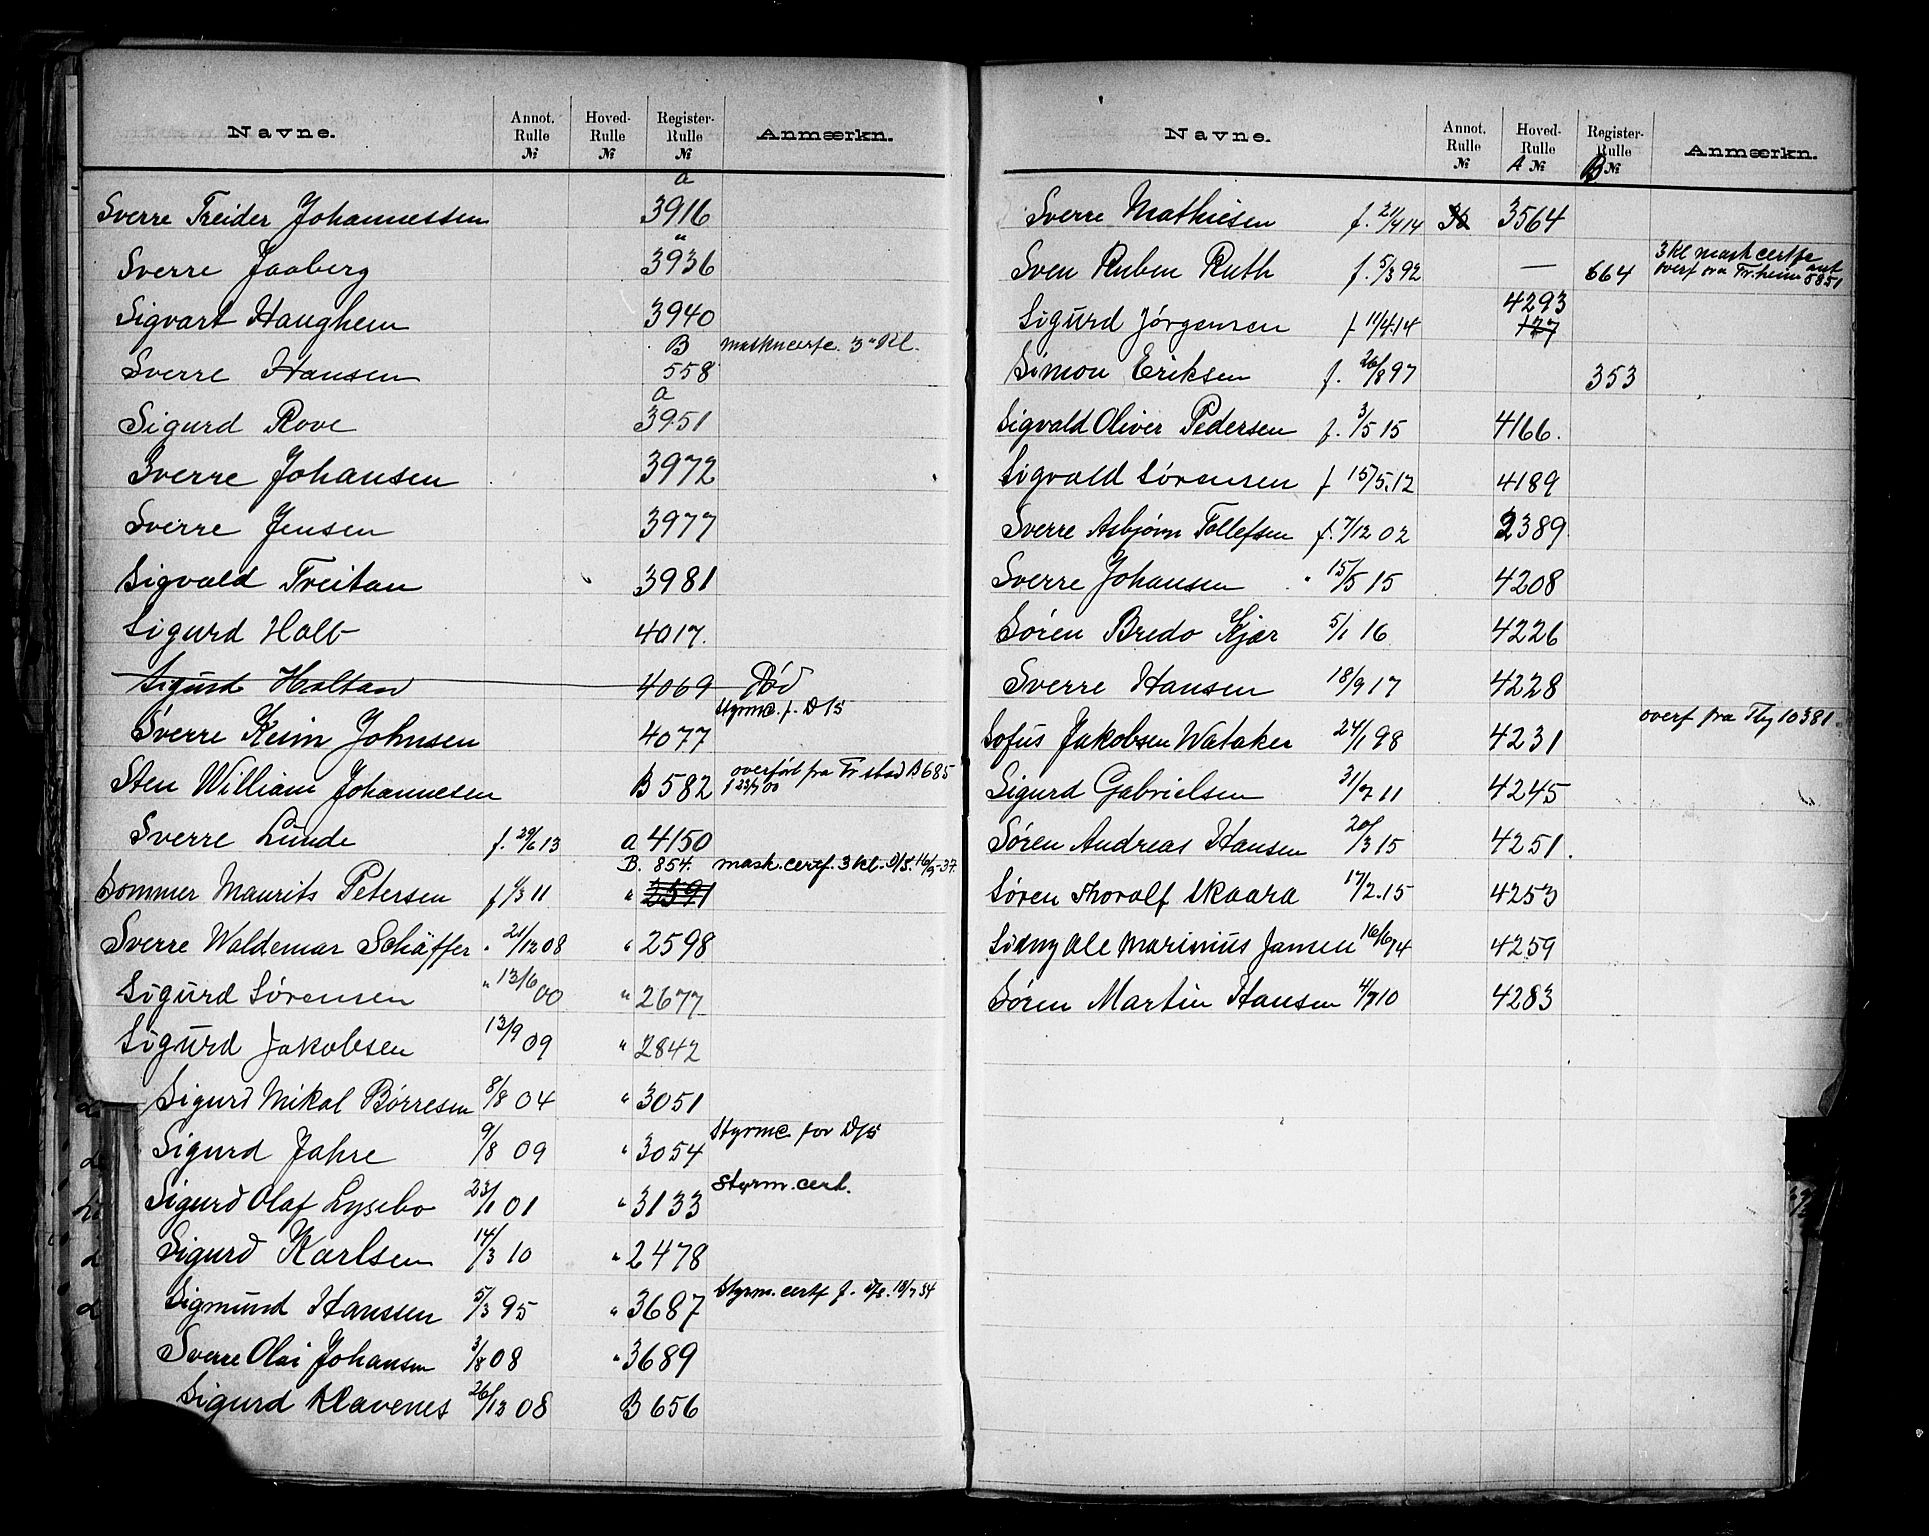 Navne. Annot. Rulle № Hoved-Rulle № Register-Rulle № Anmærkn.
Sverre Treider Johannessen a 3916
Sverre Jaaberg " 3936
Sigvart Haughem 3940
Sverre Hansen B 558 maskncertf. 3" Kl.
Sigurd Rove a 3951
Sverre Johansen 3972
Sverre Jensen 3977
Sigvald Treitan 3981
Sigurd Holt 4017.
Sigurd Holtan 4069 Død
Sverre Keim Johnsen 4077 Styrmc. f. D/S
Sten William Johannesen B 582 overført fra Fr.stad B 685
f 23/7 00
Sverre Lunde f. 29/6 13 a 4150
Sommer Maurits Petersen f 1/3 11 B. 854. " 3591 mask. certf. 3 kl. D/S. 16/9-37.
Sverre Waldemar Schäffer " 21/12 08 " 2598
Sigurd Sørensen " 13/6 00 " 2677
Sigurd Jakobsen 13/9 09 " 2842
Sigurd Mikal Børresen 8/8 04 " 3051
Sigurd Jahre 9/8 09 " 3054 Styrmc for D/S
Sigurd Olaf Lysebo 23/1 01 " 3133 Styrm. cert.
Sigurd Karlsen 14/3 10 " 2478
Sigmund Hanssen 5/3 95 " 3687 Styrm. certf f. D/S. 18/7 34
Sverre Olai Johansen 3/8 08 " 3689
Sigurd Klavenes 26/12 08 B 656
Navne. Annot. Rulle № Hoved-Rulle A № Register-Rulle B № Anmærkn.
Sverre Mathiesen f. 21/4 14 3564
Sven Ruben Ruth f. 5/3 92 — 664 3 kl mask certf
overf fra Tr.heim ant 5851
Sigurd Jørgensen f 11/4 14 4293 177
Simon Eriksen f. 26/8 97 353
Sigvald Oliver Pedersen f. 3/5 15 4166.
Sigvald Sørensen f 15/5.12 4189
Sverre Asbjørn Tollefsen f. 7/12 02 2389.
Sverre Johansen " 15/5 15 4208
Søren Bredo Kjær 5/1 16 4226
Sverre Hansen 18/9 17 4228
Sofus Jakobsen Wataker 24/1 98 4231 overf fra Tbg 10381.
Sigurd Gabrielsen 31/7 11 4245
Søren Andreas Hansen 20/3 15 4251.
Søren Thoralf Skaara 17/2.15 4253
Sidny Ole Marinius Jansen 16/6 14 4259
Søren Martin Hansen 4/7 10 4283